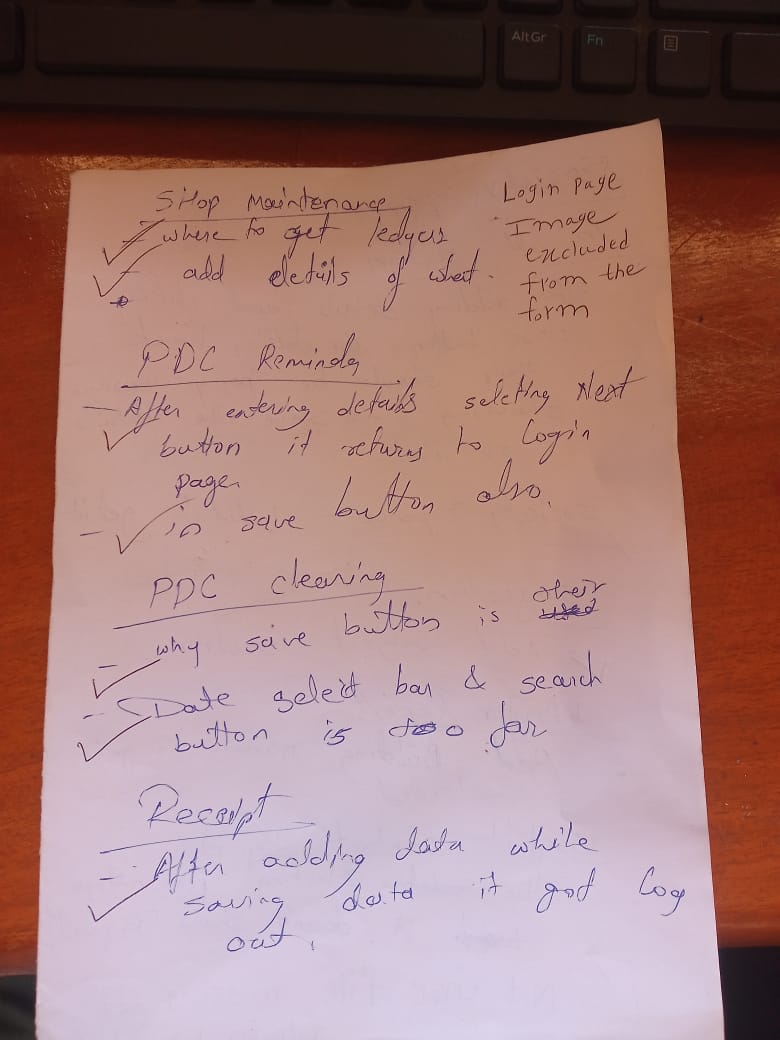 AltGr Fn
SHop Maintenance
- where to get ledgers
- add details of what.
Login page
Image
excluded
from the
form
PDC Reminder
- After entering details selcting Next
button it returns to login
page
- in save button also.
PDC clearing
- why save button is their
- Date select bar & search
button is too far
Receipt
- After adding data while
saving data it got log
out.